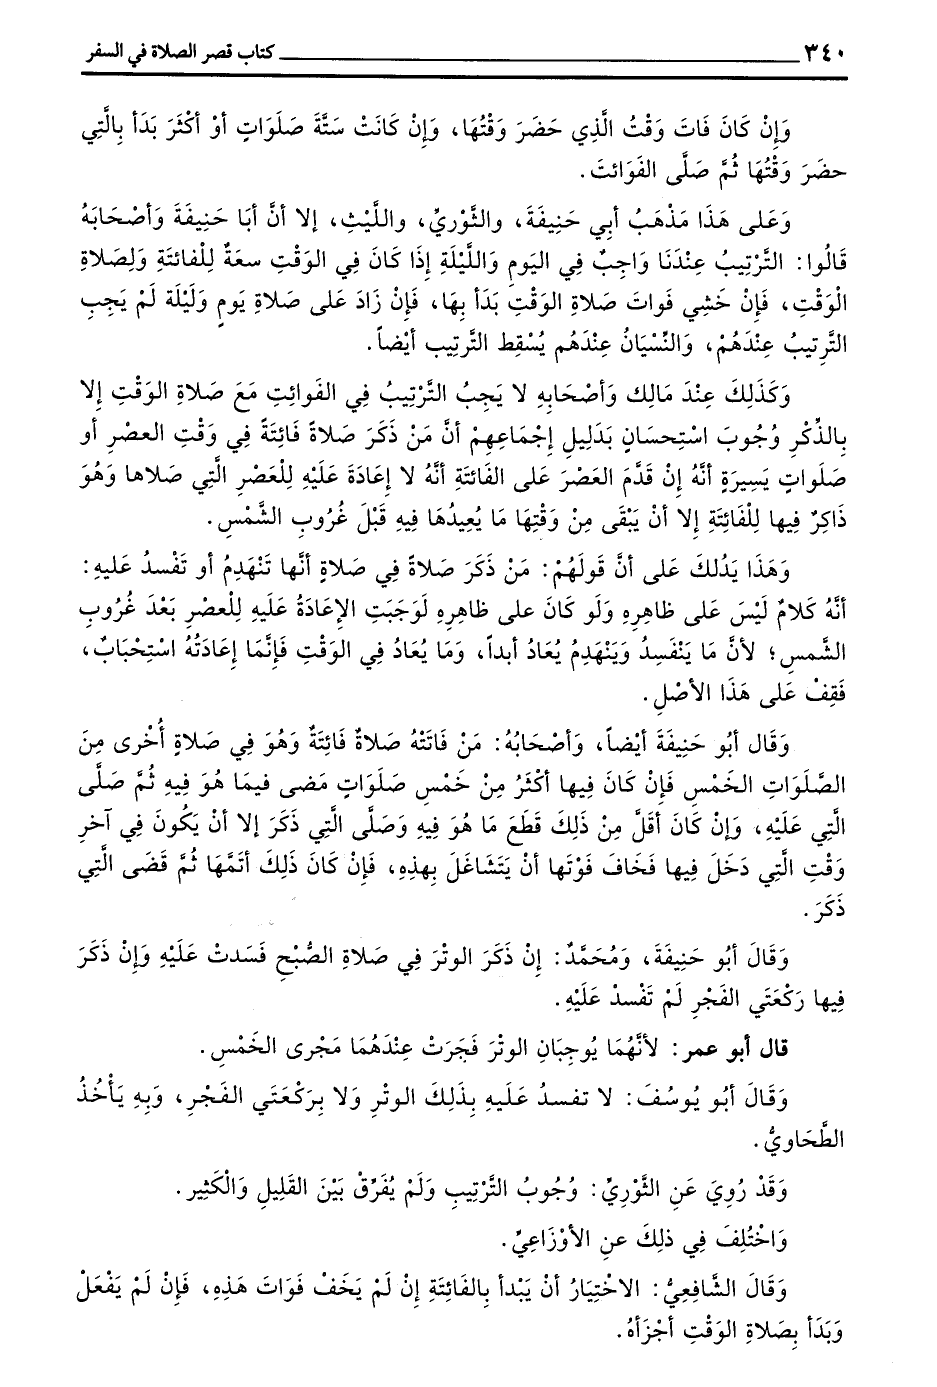 ٣٤٠ كتاب قصر الصلاة في السفر
وَإِنْ كَانَ فَاتَ وَقْتُ الَّذِي حَضَرَ وَقْتُهَا، وَإِنْ كَانَتْ سَتَّةَ صَلَوَاتٍ أوْ أكْثَرَ بَدَأ بِالَّتِي
حضَرَ وَقْتُهَا ثُمَّ صَلَّى الفَوَائتَ.
وَعَلى هَذَا مَذْهَبُ أبي حَنِيفَةَ، والثَّوْريِّ، واللَّيْثِ، إلا أنَّ أبَا حَنِيفَةَ وَأصْحَابَهُ
قَالُوا: التَّرْتِيبُ عِنْدَنَا وَاجِبٌ فِي اليَومِ وَاللَّيْلَةِ إذَا كَانَ فِي الوَقْتِ سعَةٌ لِلْفائتَةِ وَلِصَلاةِ
الْوَقْتِ، فَإنْ خَشِي فَواتَ صَلاةِ الوَقْتِ بَدَأ بِهَا، فَإنْ زَادَ عَلَى صَلاةِ يَومٍ وَلَيْلَة لَمْ يَجِبِ
التَّرِتيبُ عِنْدَهُمْ، وَالنِّسْيَانُ عِنْدَهُم يُسْقِط التَّرتِيب أيْضاً.
وَكَذَلِكَ عِنْدَ مَالِك وَأصْحَابِهِ لا يَجِبُ التَّرْتِيبُ فِي الفَوائِتِ مَعَ صَلاةِ الوَقْتِ إلا
بِالذِّكْرِ وُجُوبَ اسْتِحسَانٍ بَدَلِيلِ إجْمَاعِهِمْ أنَّ مَنْ ذَكَرَ صَلاةً فَائِتَةً فِي وَقْتِ العصْرِ أو
صَلَواتٍ يَسِيرَةٍ أنَّهُ إنْ قَدَّمَ العَصْرَ عَلى الفَائتَةِ أنَّهُ لا إعَادَةَ عَلَيْهِ لِلْعَصْرِ الَّتِي صَلاها وَهُوَ
ذَاكِرٌ فِيها لِلْفَائِتَةِ إلا أنْ يَبْقَى مِنْ وَقْتِهَا مَا يُعِيدُهَا فِيهِ قَبْلَ غُرُوبِ الشَّمْسِ.
وَهَذَا يَدُلكَ عَلى أنَّ قَولَهُمْ: مَنْ ذَكَرَ صَلاةً فِي صَلاةٍ أنَّها تَنْهَدِمُ أو تَفْسدُ عَليهِ:
أنَّهُ كَلامٌ لَيْسَ عَلى ظاهِرِهِ وَلَو كَانَ على ظاهِرِهِ لَوَجَبَتِ الإعَادَةُ عَلَيهِ لِلْعصْرِ بَعْدَ غُرُوبِ
الشَّمسِ؛ لأنَّ مَا يَنْفَسِدُ وَيَنْهَدِمُ يُعَادُ أبداً، وَمَا يُعَادُ فِي الوَقْتِ فَإنَّمَا إعَادَتُهُ اسْتِحْبَابٌ،
فَقِفْ عَلى هَذَا الأصْلِ.
وَقَال أبُو حَنِيفَةَ أيْضاً، وَأصْحَابُهُ: مَنْ فَاتَتْهُ صَلاةٌ فَائِتَةٌ وَهُوَ فِي صَلاةٍ أُخْرى مِنَ
الصَّلَوَاتِ الخَمْسِ فَإنْ كَانَ فِيها أكْثَرُ مِنْ خَمْسِ صَلَوَاتٍ مَضى فيمَا هُوَ فِيهِ ثُمَّ صَلَّى
الَّتِي عَلَيْهِ، وَإنْ كَانَ أقَلَّ مِنْ ذَلِكَ قَطَعَ مَا هُوَ فِيهِ وَصَلَّى الَّتِي ذَكَرَ إلا أنْ يَكُونَ فِي آخرِ
وَقْتِ الَّتِي دَخَلَ فِيها فَخَافَ فَوْتَها أنْ يَتَشَاغَلَ بِهذِهِ، فَإنْ كَانَ ذَلِكَ أتَمَّهَا ثُمَّ قَضى الَّتِي
ذَكَرَ.
وَقَالَ أبُو حَنِيفَةَ، وَمُحَمَّدٌ: إنْ ذَكَرَ الوتْرَ فِي صَلاةِ الصُّبْحِ فَسَدتْ عَلَيْهِ وَإنْ ذَكَرَ
فِيها رَكْعَتَي الفَجْرِ لَمْ تَفْسدْ عَلَيْهِ.
قال أبو عمر: لأنَّهُمَا يُوجِبَانِ الوتْرَ فَجَرَتْ عِنْدَهُمَا مَجْرى الخَمْسِ.
وَقَالَ أبُو يُوسُفَ: لا تفسدُ عَلَيهِ بِذَلِكَ الوتْرِ وَلا بِرَكْعَتَي الفَجْرِ، وَبِهِ يَأْخُذُ
الطَّحَاويُّ.
وَقَدْ رُوِيَ عَنِ الثَّوْرِيِّ: وُجُوبُ التَّرْتِيبِ وَلَمْ يُفَرِّقْ بَيْنَ القَلِيلِ وَالْكَثِيرِ.
وَاخْتُلِفَ فِي ذلِكَ عنِ الأوْزَاعِيِّ.
وَقَالَ الشَّافِعِيُّ: الاخْتِيَارُ أنْ يَبْدأ بِالفَائِتَةِ إنْ لَمْ يَخَفْ فَوَاتَ هَذِهِ، فَإنْ لَمْ يَفْعَلْ
وَبَدَأ بِصَلاةِ الوَقْتِ أجْزَأهُ.